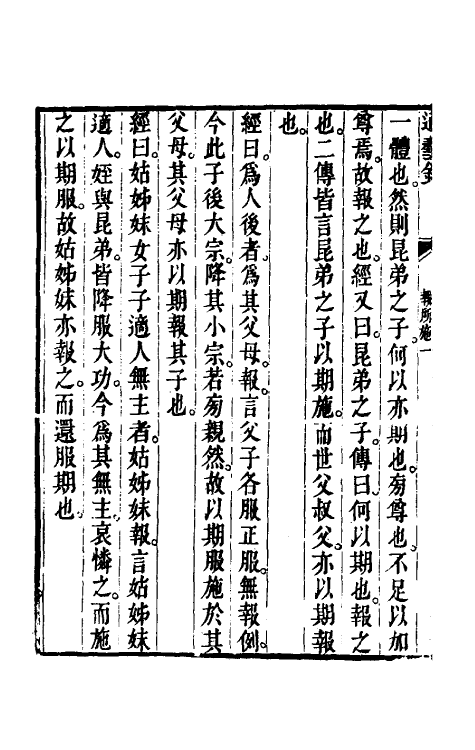 通藝錄
報所施一
一體也。然則昆弟之子何以亦期也。旁尊也。不足以加
尊焉。故報之也。經又曰。昆弟之子。傳曰。何以期也。報之
也。二傳皆言昆弟之子以期施。而世父叔父。亦以期報
也。
經曰。爲人後者。爲其父母。報。言父子各服正服。無報例。
今此子後大宗。降其小宗。若旁親然。故以期服施於其
父母。其父母亦以期報其子也。
經曰。姑姊妹女子子適人無主者。姑姊妹報。言姑姊妹
適人。姪與昆弟。皆降服大功。今爲其無主。哀憐之。而施
之以期服。故姑姊妹亦報之。而還服期也。